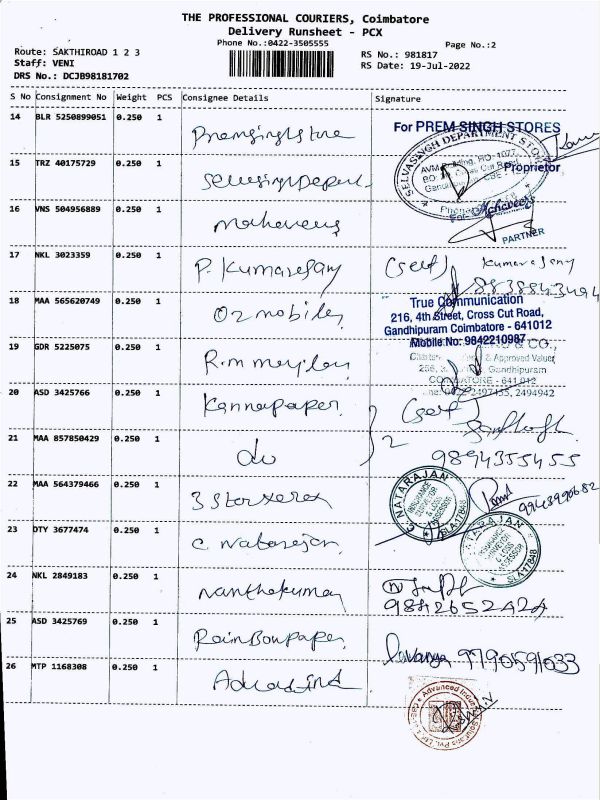 THE PROFESSIONAL COURIERS, Coimbatore
Delivery Runsheet - PCX
Phone No.:0422-3505555
Page No.:2
Route: SAKTHIROAD 1 2 3
Staff: VENI
DRS No.: DCJB98181702
RS No.: 981817
RS Date: 19-Jul-2022
S No Consignment No Weight PCS Consignee Details Signature
14 BLR 5250899051 0.250 1 Premsingh store
For PREM SINGH STORES
Proprietor
15 TRZ 40175729 0.250 1
SELVASINGH DEPARTMENT STORE
16 VNS 504956889 0.250 1 Mahaveers
For Mahaveers
PARTNER
17 NKL 3023359 0.250 1 P. Kumaresan (self) Kumaresan
8838843494
18 MAA 565620749 0.250 1 O2 mobiles
True Communication
216, 4th Street, Cross Cut Road,
Gandhipuram Coimbatore - 641012
Mobile No: 9842210987
19 GDR 5225075 0.250 1
& CO.,
& Approved Valuer
Gandhipuram
COIMBATORE - 641 012
2497455, 2494942
20 ASD 3425766 0.250 1 Kannapaper (self)
21 MAA 857850429 0.250 1 do } 2
9894355455
22 MAA 564379466 0.250 1 3 Star xerox
9943990682
C. NATARAJAN
INSURANCE
SURVEYOR
& LOSS
ASSESSOR
SLA-17848
23 DTY 3677474 0.250 1 C. Natarajan
NATARAJAN
INSURANCE
SURVEYOR
& LOSS
ASSESSOR
SLA-17848
24 NKL 2849183 0.250 1 Nanthakumar
9842652424
25 ASD 3425769 0.250 1 RainBowpaper
Lavanya 9790591033
26 MTP 1168308 0.250 1
Advanced Industrial Solutions Pvt. Ltd.